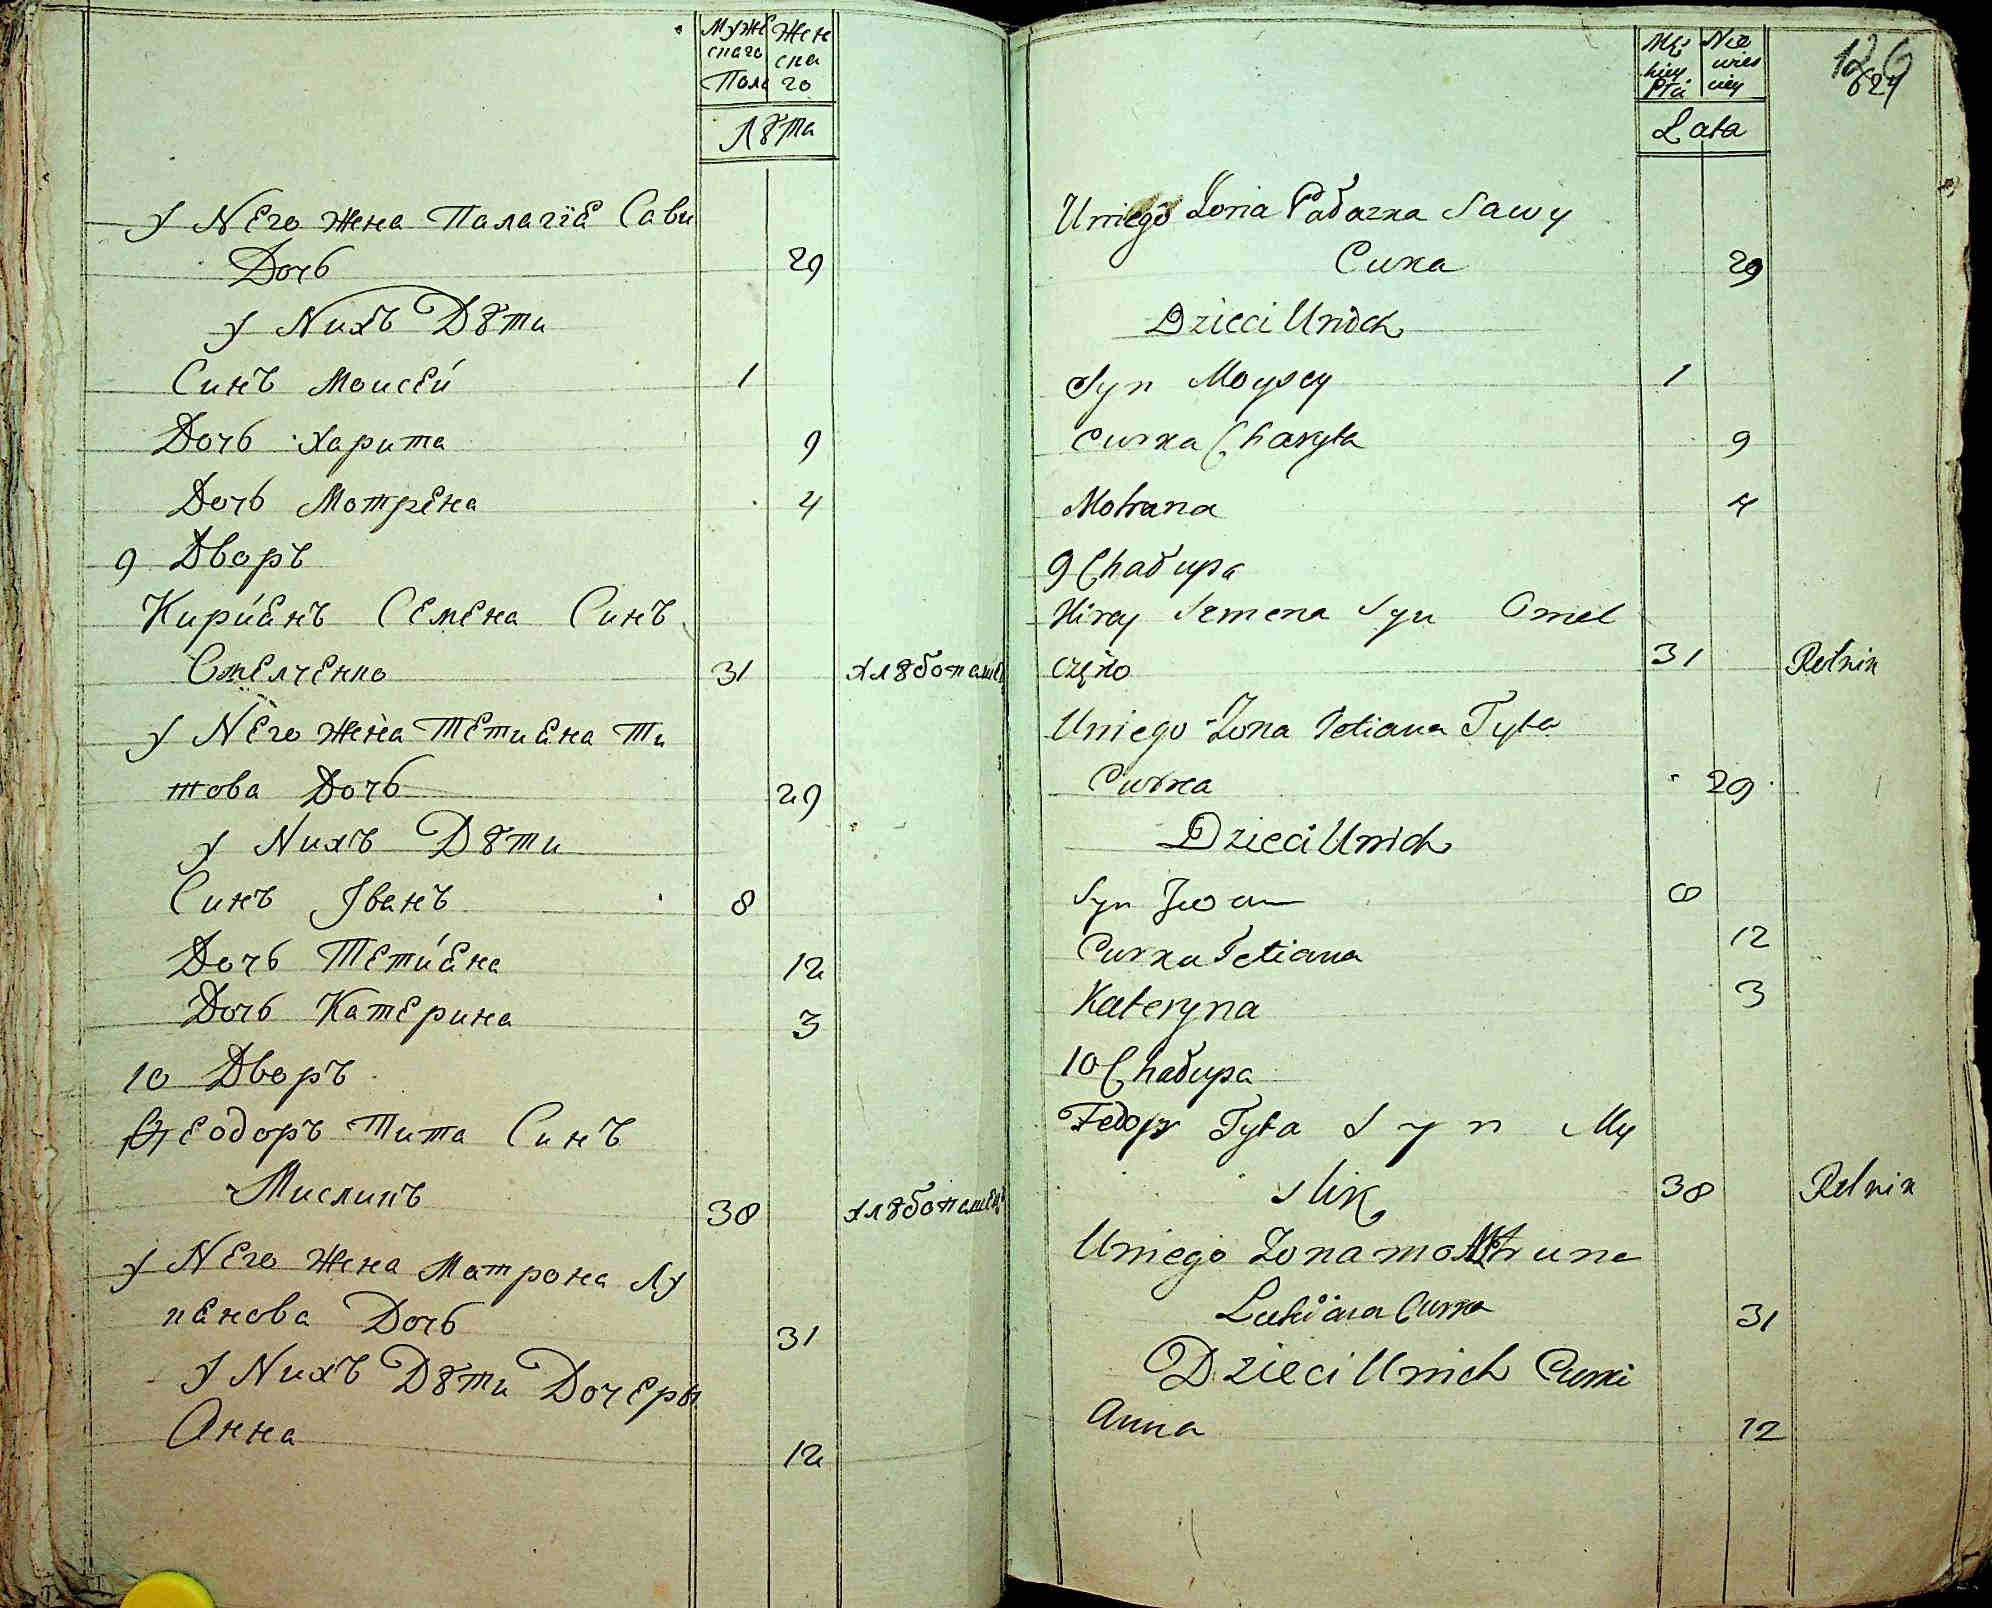 Муже Жен
скаго ска
Пола го
Лѣта
У Него жена Палагїа Сави
Дочь 29
у Нихъ Дѣти
Синъ Моисей 1
Дочь Харита 9
Дочь Мотрена 4
9 Дворъ
Кириѣнъ Семена Синъ
Омелченко 31 хлѣбопашец
у Него жена Тетиѣна Ти
това Дочь 29
у Нихъ Дѣти
Синъ Іванъ 8
Дочь Тетиѣна 12
Дочь Катерина 3
10 Дворъ
Ѳеодоръ Тита Синъ
Мисликъ 38 хлѣбопашец
у Него жена Мотрона Лу
кѣнова Дочь 31
У Нихъ Дѣти Дочеры
Анна 12
126
627
Mę Nie
skiey wies
Płci ciey
Lata
Uniego Zona Sawy
Curka 29
Dzieci Unich
Syn Moysey 1
Curka Charyta 9
Motrana 4
9 Chałupa
Kiray Semena Syn Omel
częko 31 Rolnik
Uniego Zona Tetiana Tyta
Curka 29
Dzieci Unich
Syn Jwan 8
Curka Tetiana 12
Kateryna 3
10 Chałupa
Fedor Tyta Syn My
slik 38 Rolnik
Uniego Zona motruna
Lukiana Curka 31
Dzieci Unich Curki
Anna 12